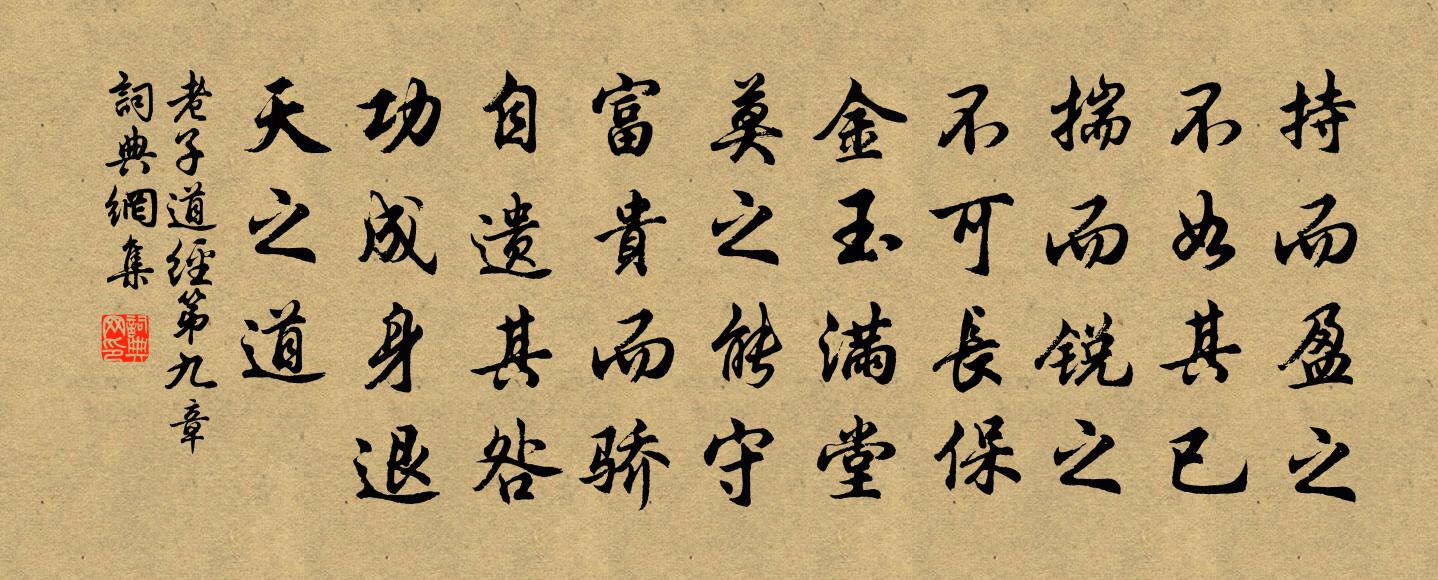 持而盈之
不如其已
揣而锐之
不可長保
金玉满堂
莫之能守
富貴而骄
自遗其咎
功成身退
天之道
老子道經第九章
詞典網集
詞典
网印